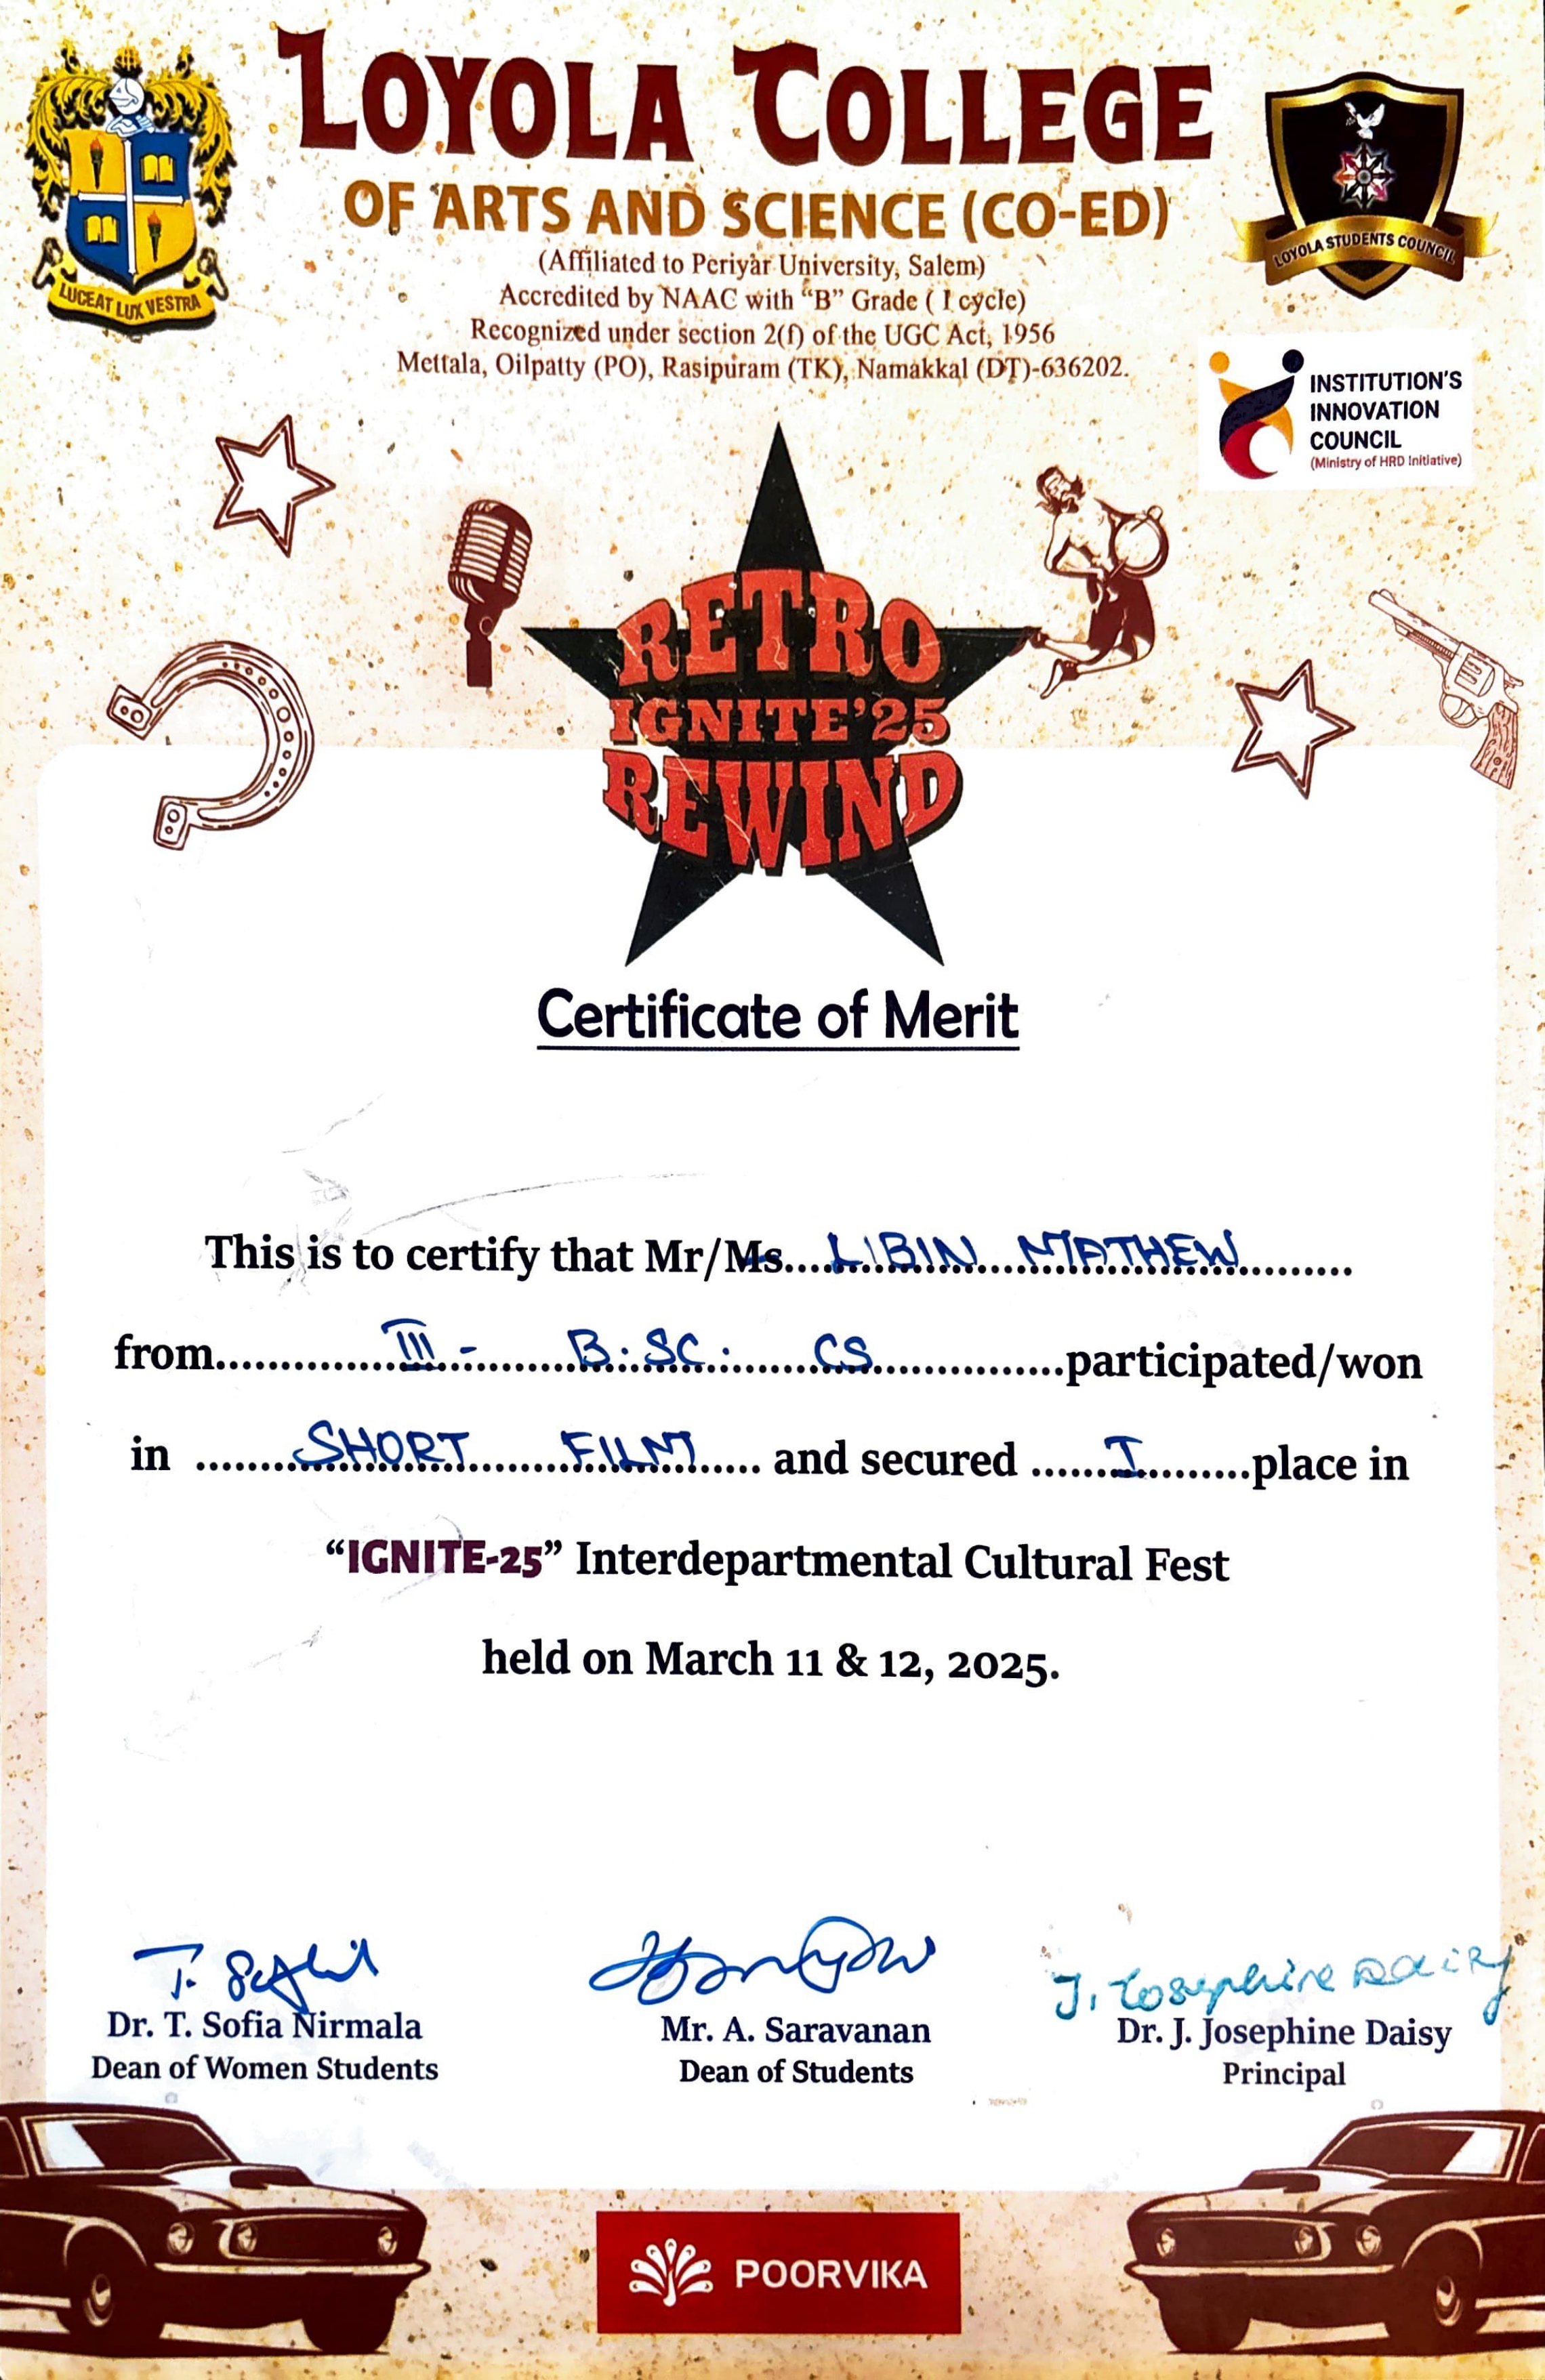 LOYOLA COLLEGE
OF ARTS AND SCIENCE (CO-ED)
(Affiliated to Periyar University, Salem)
Accredited by NAAC with “B” Grade ( I cycle)
Recognized under section 2(f) of the UGC Act, 1956
Mettala, Oilpatty (PO), Rasipuram (TK), Namakkal (DT)-636202.
LUCEAT LUX VESTRA
LOYOLA STUDENTS COUNCIL
INSTITUTION'S
INNOVATION
COUNCIL
(Ministry of HRD Initiative)
RETRO
IGNITE'25
REWIND
Certificate of Merit
This is to certify that Mr/Ms....LIBIN MATHEW..........
from................III - B.SC. CS...............participated/won
in ........SHORT FILM...... and secured ......I.........place in
“IGNITE-25” Interdepartmental Cultural Fest
held on March 11 & 12, 2025.
J. Josephine Daisy
Dr. T. Sofia Nirmala
Dean of Women Students
Mr. A. Saravanan
Dean of Students
Dr. J. Josephine Daisy
Principal
POORVIKA